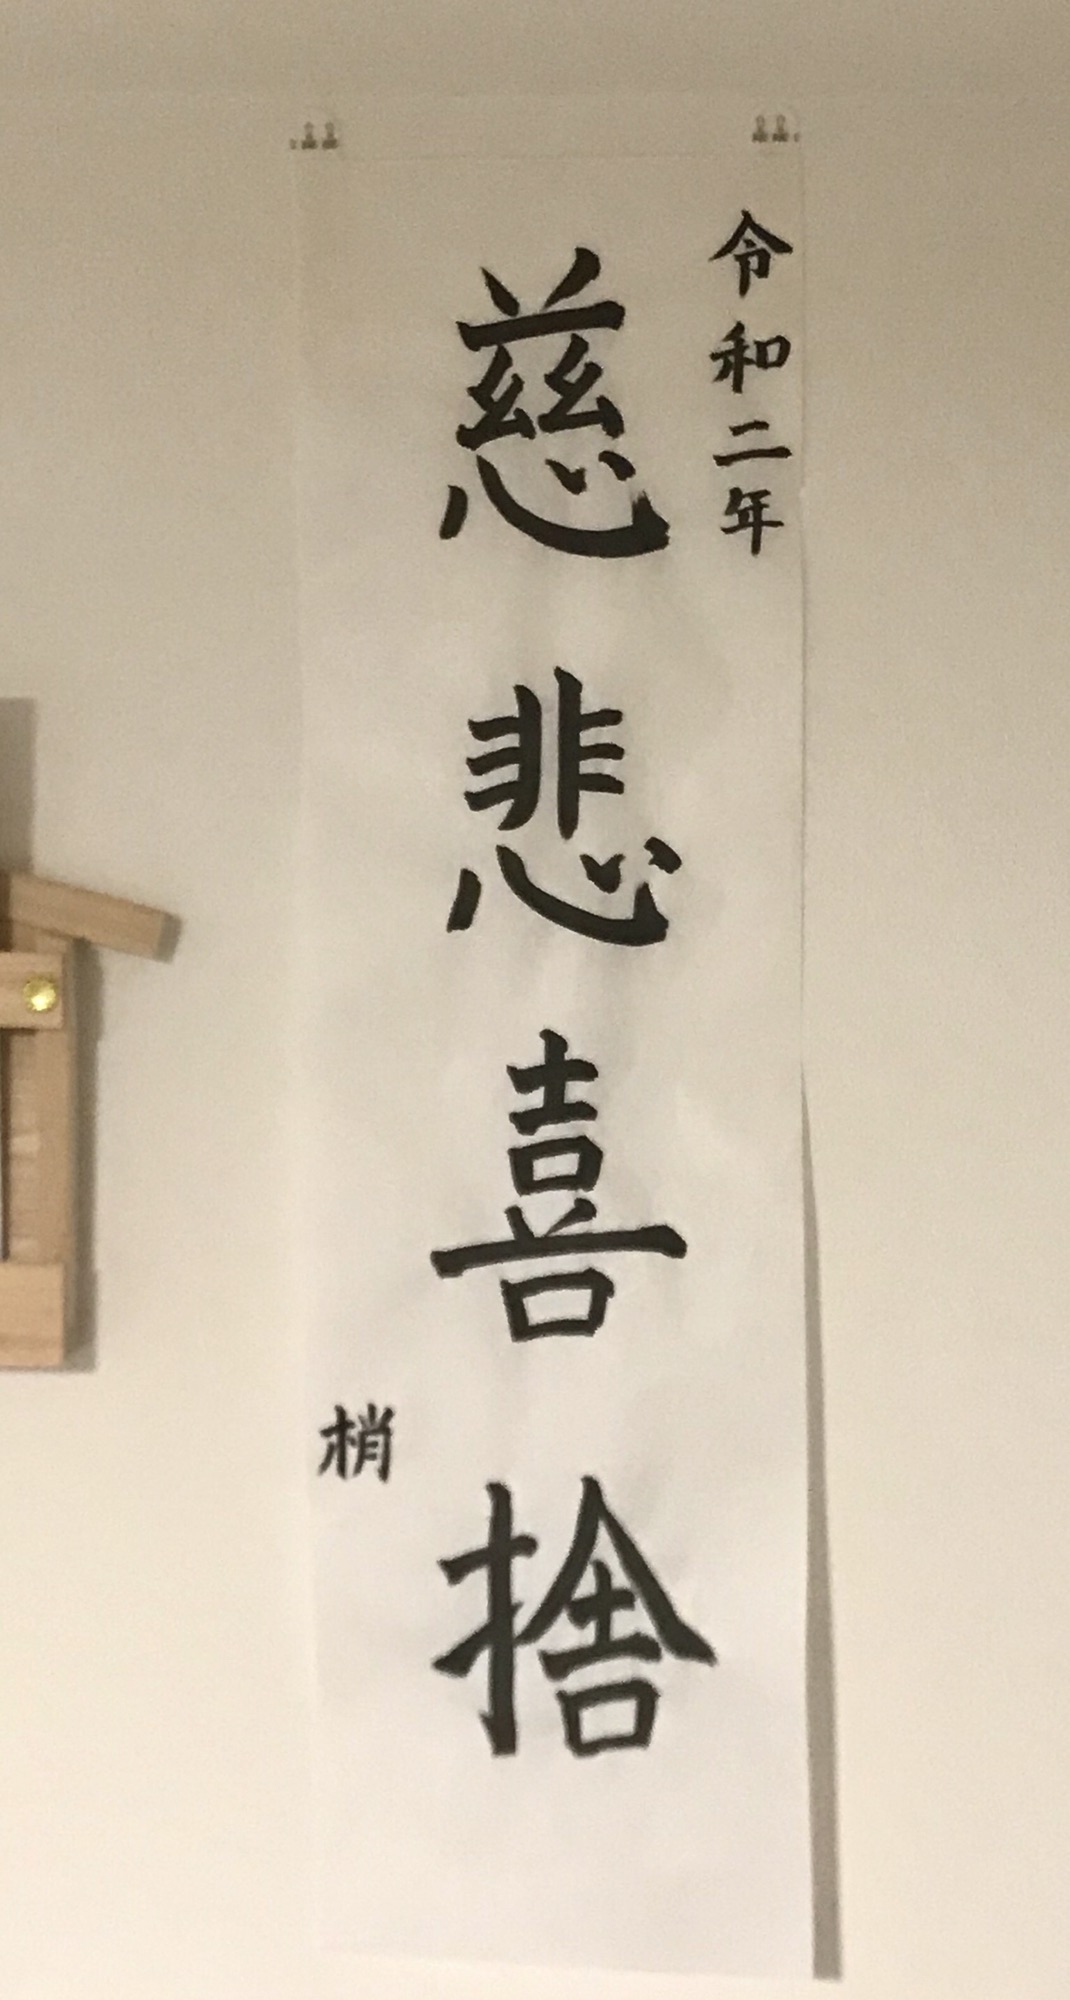 令和二年
慈悲喜捨
梢